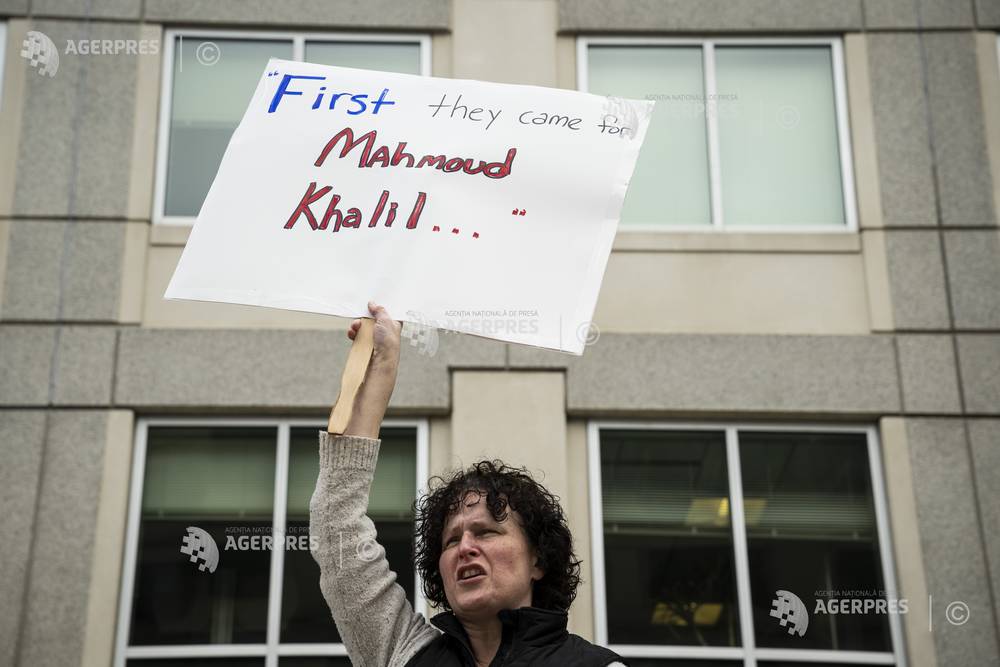 "First they came for
Mahmoud
Khalil..."
AGERPRES ©
AGENȚIA NAȚIONALĂ DE PRESĂ
©
AGENȚIA NAȚIONALĂ DE PRESĂ
AGERPRES ©
AGENȚIA NAȚIONALĂ DE PRESĂ
AGERPRES ©
AGENȚIA NAȚIONALĂ DE PRESĂ
AGERPRES ©